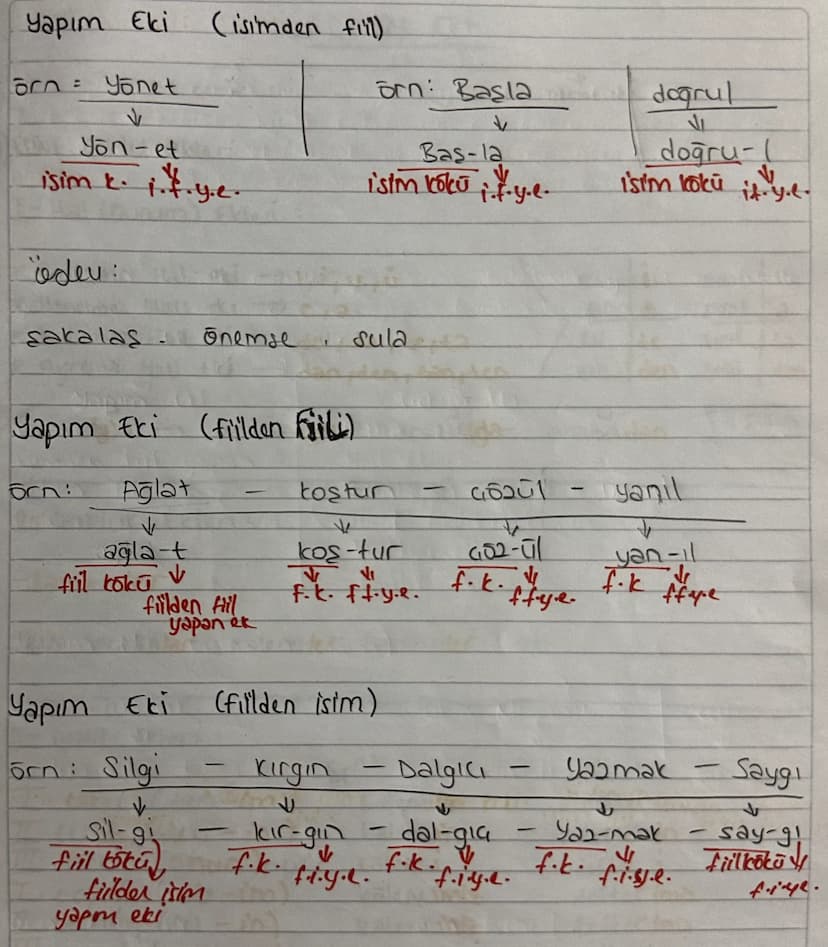 Yapım Eki (isimden fiil)
örn = Yönet örn: Başla doğrul
Yön-et Baş-la doğru-l
isim k. i.f.y.e. isim kökü i.f.y.e. isim kökü i.f.y.e.
ödev:
şakalaş - önemse , sula
Yapım Eki (fiilden fiil)
örn: Ağlat - koştur - çözül - yanıl
ağla-t koş-tur çöz-ül yan-ıl
fiil kökü f.k. f.f.y.e. f.k. f.f.y.e. f.k f.f.y.e
fiilden fiil
yapan ek
Yapım Eki (fiilden isim)
örn: Silgi - kırgın - Dalgıç - Yazmak - Saygı
sil-gi - kır-gın - dal-gıç - yaz-mak - say-gı
fiil kökü f.k. f.i.y.e. f.k. f.i.y.e. f.k. f.i.y.e. fiil kökü
fiilden isim f.i.y.e.
yapım eki